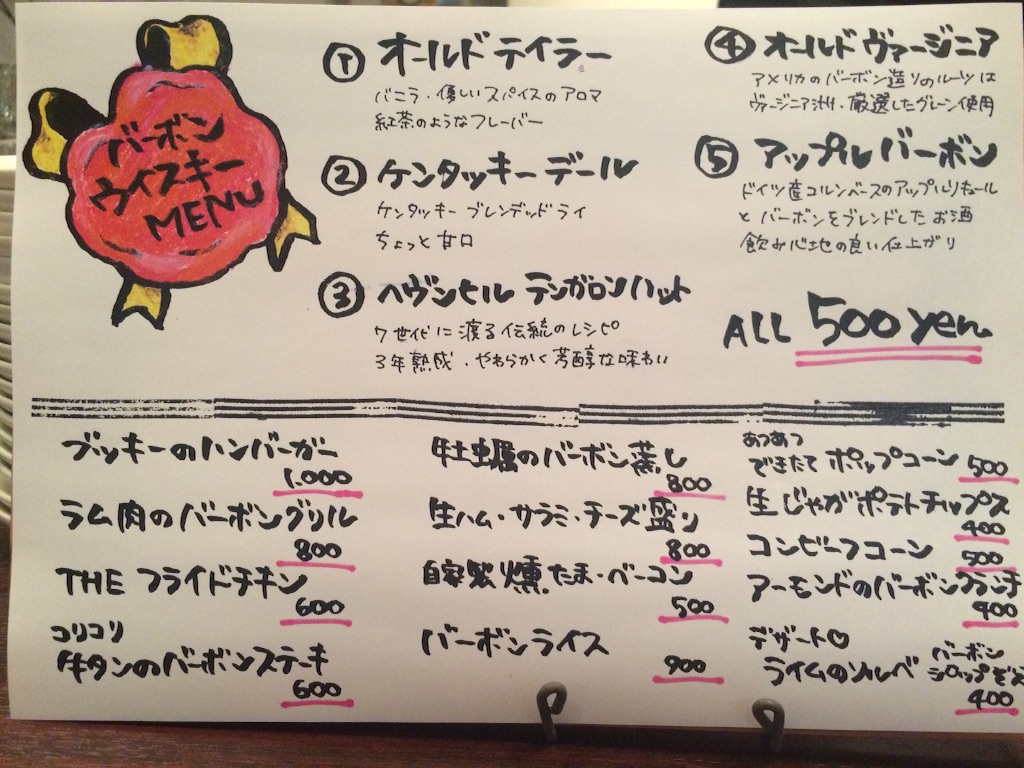 バーボン
ウイスキー
MENU
① オールド テイラー
バニラ・優しいスパイスのアロマ
紅茶のようなフレーバー
② ケンタッキー デール
ケンタッキー ブレンデッド ライ
ちょっと甘口
③ ヘヴンヒル テンガロンハット
7世代に渡る伝統のレシピ
3年熟成・やわらかく芳醇な味わい
④ オールド ヴァージニア
アメリカのバーボン造りのルーツは
ヴァージニア州・厳選したグレーン使用
⑤ アップル バーボン
ドイツ産コルンベースのアップルリキュール
とバーボンをブレンドしたお酒
飲み心地の良い仕上がり
ALL 500 yen.
ブッキーのハンバーガー
1,000
ラム肉のバーボングリル
800
THE フライドチキン
600
コリコリ
牛タンのバーボンステーキ
600
牡蠣のバーボン蒸し
800
生ハム・サラミ・チーズ盛り
800
自家製燻たま・ベーコン
500
バーボンライス
900
あつあつ
できたて ポップコーン 500
生じゃがポテトチップス
400
コンビーフコーン 500
アーモンドのバーボンクランチ
400
デザート♡
ライムのソルベ バーボン
シロップぞえ
400